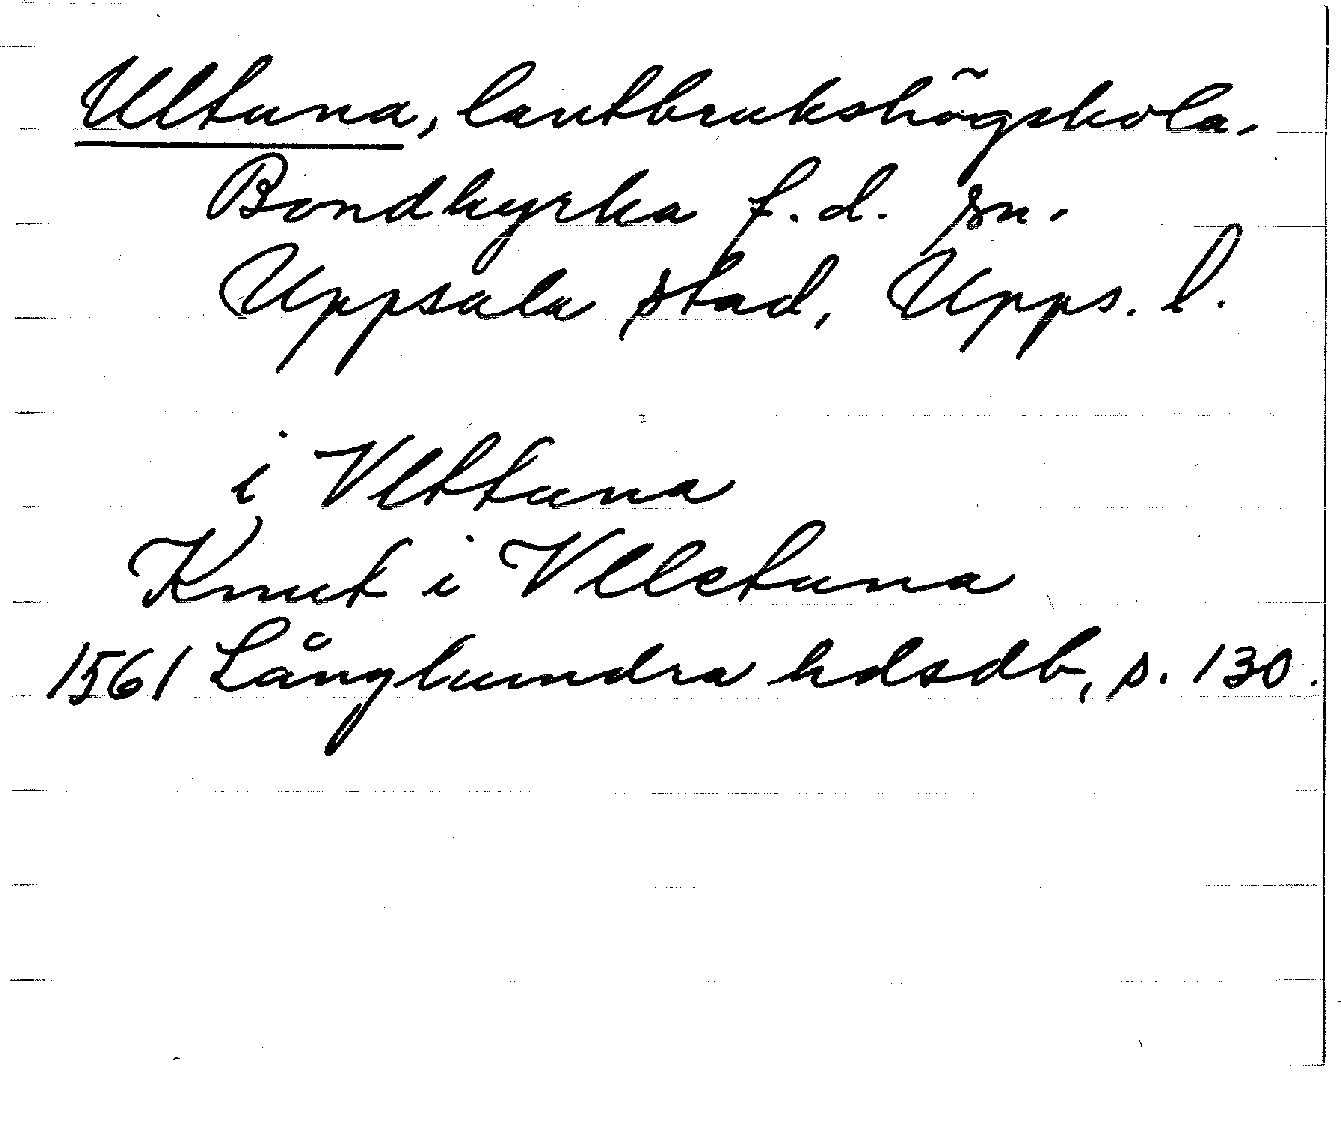 Ultuna, lantbrukshögskola.
Bondkyrka f.d. sn.
Uppsala stad, Upps. l.
i Vlttuna
Knut i Vlletuna
1561 Långhundra hdsdb, s. 130.